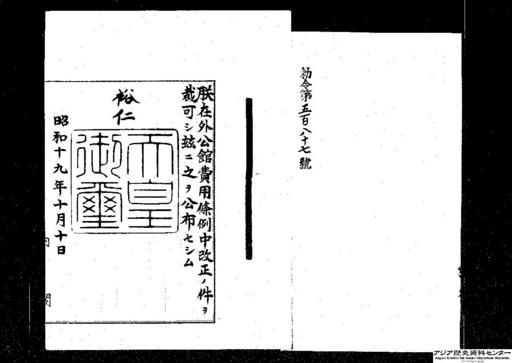 勅令第五百八十七號
朕在外公館費用條例中改正ノ件ヲ
裁可シ玆ニ之ヲ公布セシム
裕仁
天皇
御璽
昭和十九年十月十日
内閣
アジア歴史資料センター
Japan Center for Asian Historical Records